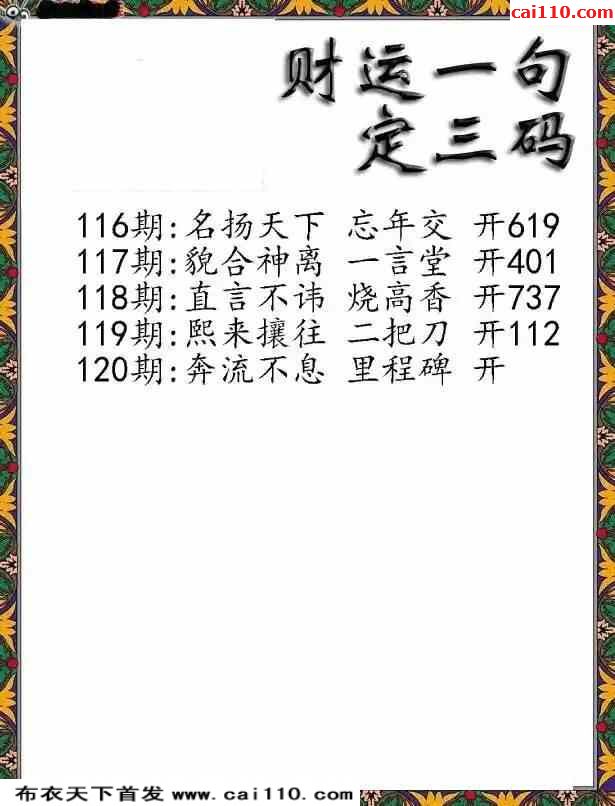 cai110.com
财运一句
定三码
116期:名扬天下 忘年交 开619
117期:貌合神离 一言堂 开401
118期:直言不讳 烧高香 开737
119期:熙来攘往 二把刀 开112
120期:奔流不息 里程碑 开
布衣天下首发 www.cai110.com